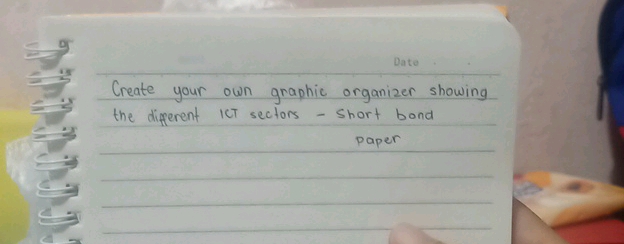 Date
Create your own graphic organizer showing
the different ICT sectors - Short bond
paper